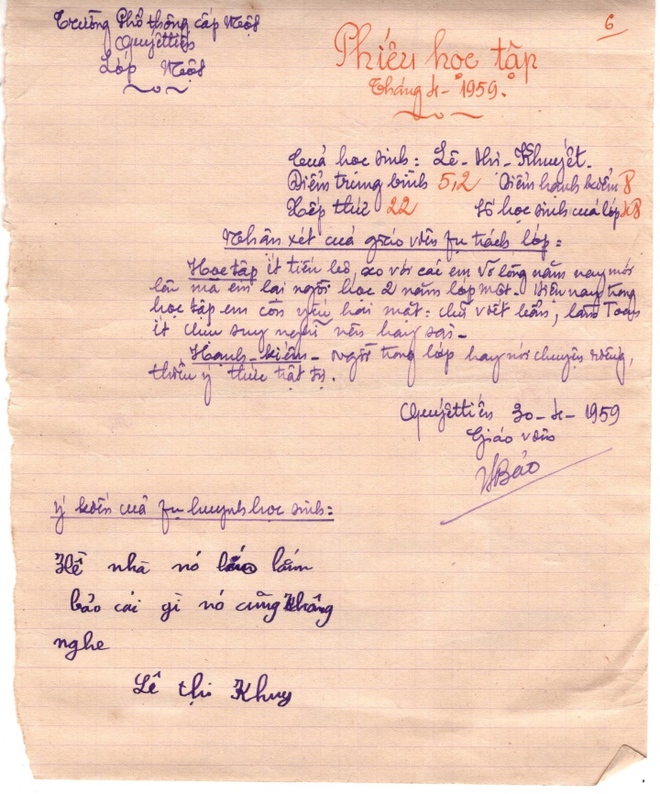 Trường Phổ thông cấp Một
Quyết tiến
Lớp Một
6
Phiếu học tập
Tháng 4-1959.
Của học sinh: Lê-thị-Khuyết.
Điểm trung bình 5,2 Điểm hạnh kiểm 8
Xếp thứ 22 Số học sinh của lớp 48
Nhận xét của giáo viên fụ trách lớp:
Học tập ít tiến bộ, so với các em vỡ lòng năm nay mới
lên mà em lại người học 2 năm lớp một. Hiện nay trong
học tập em còn yếu hai mặt: chữ viết bẩn, làm Toán
ít chịu suy nghĩ nên hay sai-
Hạnh-kiểm- Ngồi trong lớp hay nói chuyện riêng,
thiếu ý thức trật tự.
Quyết tiến 30-4-1959
Giáo viên
VBảo
Ý kiến của fụ huynh học sinh:
Hề nhà nó láo lắm
bảo cái gì nó cũng không
nghe
Lê thị Khuy